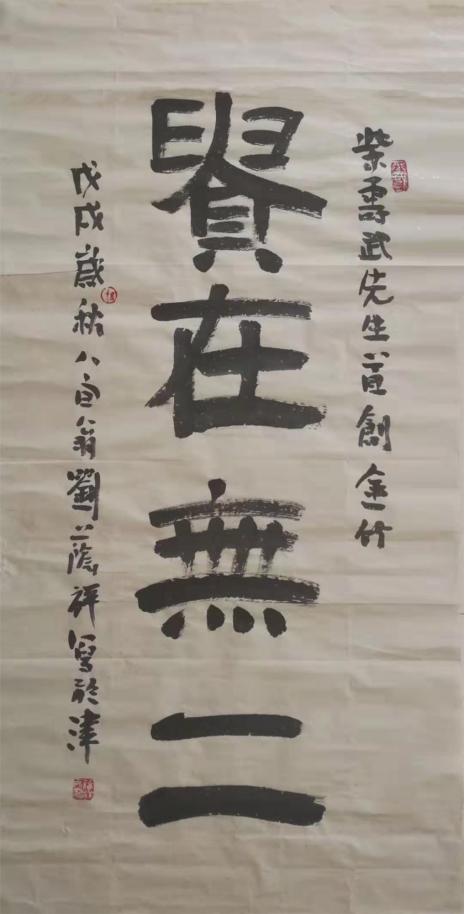 柴寿武先生首創金竹
貴在無二
戊戌歲秋八旬翁劉蔭祥寫於津